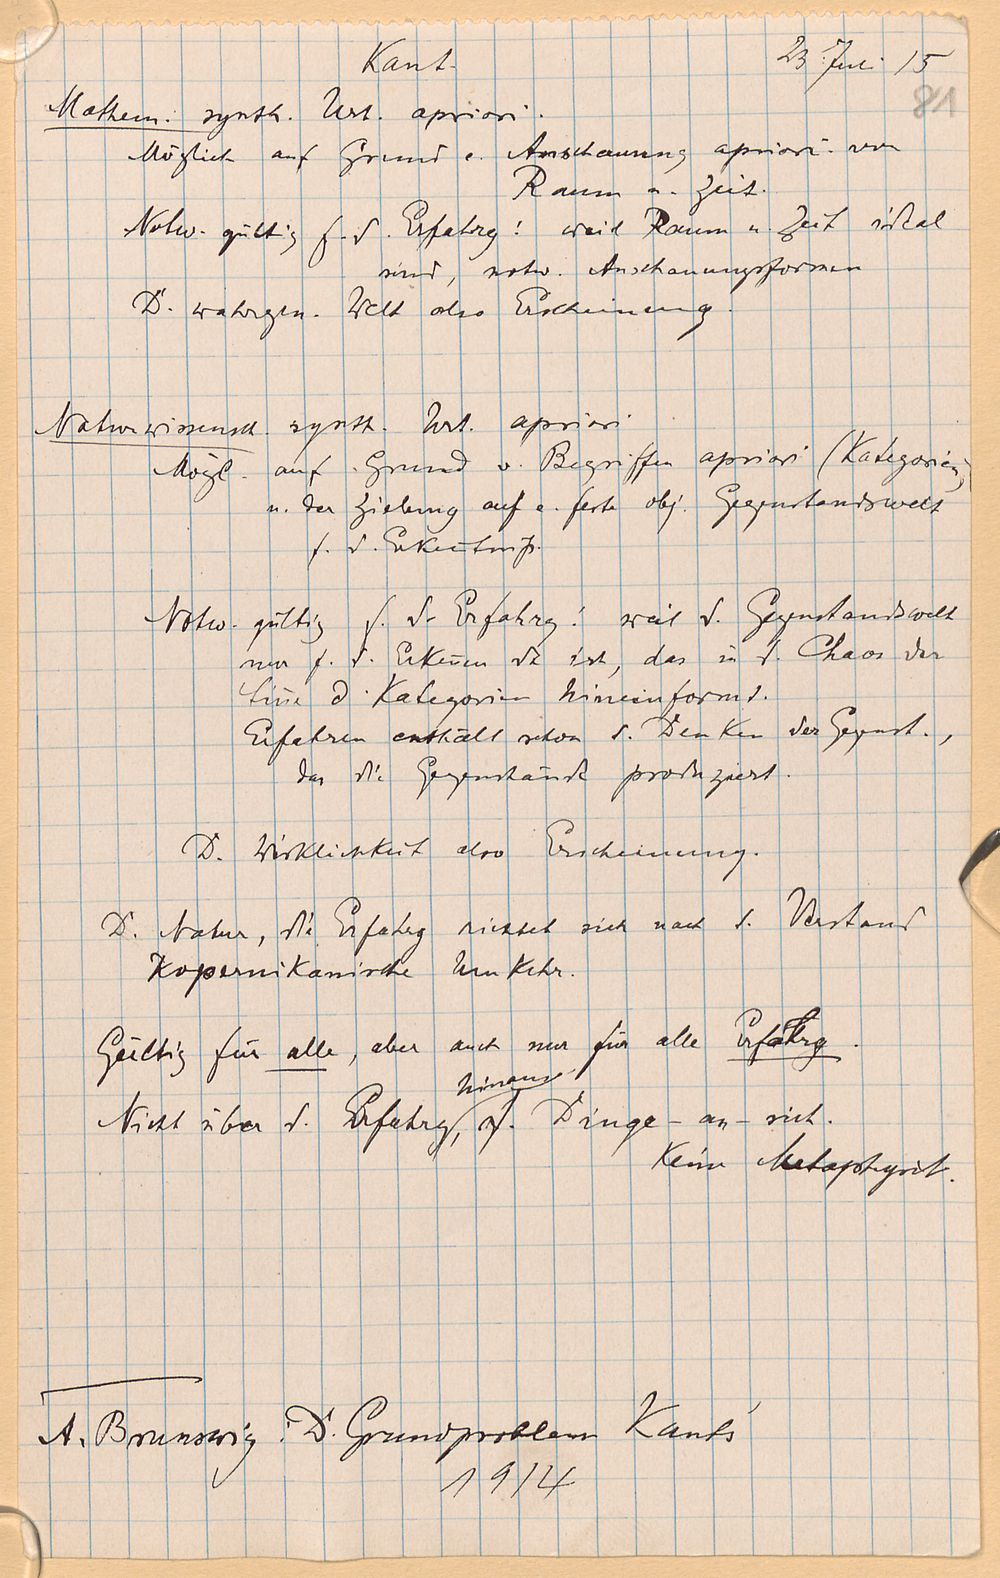 Kant.
23 Juli 15
81
Mathem. synth. Urt. apriori.
Möglich auf Grund e. Anschauung apriori von
Raum u. Zeit.
Notw. gültig f. d. Erfahrg! weil Raum u. Zeit ideal
sind, notw. Anschauungsformen
D. wahrgen. Welt also Erscheinung.
Naturwissensch. synth. Urt. apriori
Mögl. auf Grund v. Begriffen apriori (Kategorien)
u. der Zielung auf e. feste obj. Gegenstandswelt
f. d. Erkentniß.
Notw. gültig f. d. Erfahrg! weil d. Gegenstandswelt
nur f. d. Erkenen da ist, das in d. Chaos der
Sine d. Kategorien hineinformt.
Erfahren enthält schon d. Denken der Gegenst.,
das die Gegenstände produziert.
D. Wirklichkeit also Erscheinung.
D. Natur, die Erfahrg richtet sich nach d. Verstand
Kopernikanische Umkehr.
Gültig für alle, aber auch nur für alle Erfahrg.
hinaus
Nicht über d. Erfahrg, f. Dinge-an-sich.
Keine Metaphysik.
A. Brunswig: D. Grundproblem Kants
1914